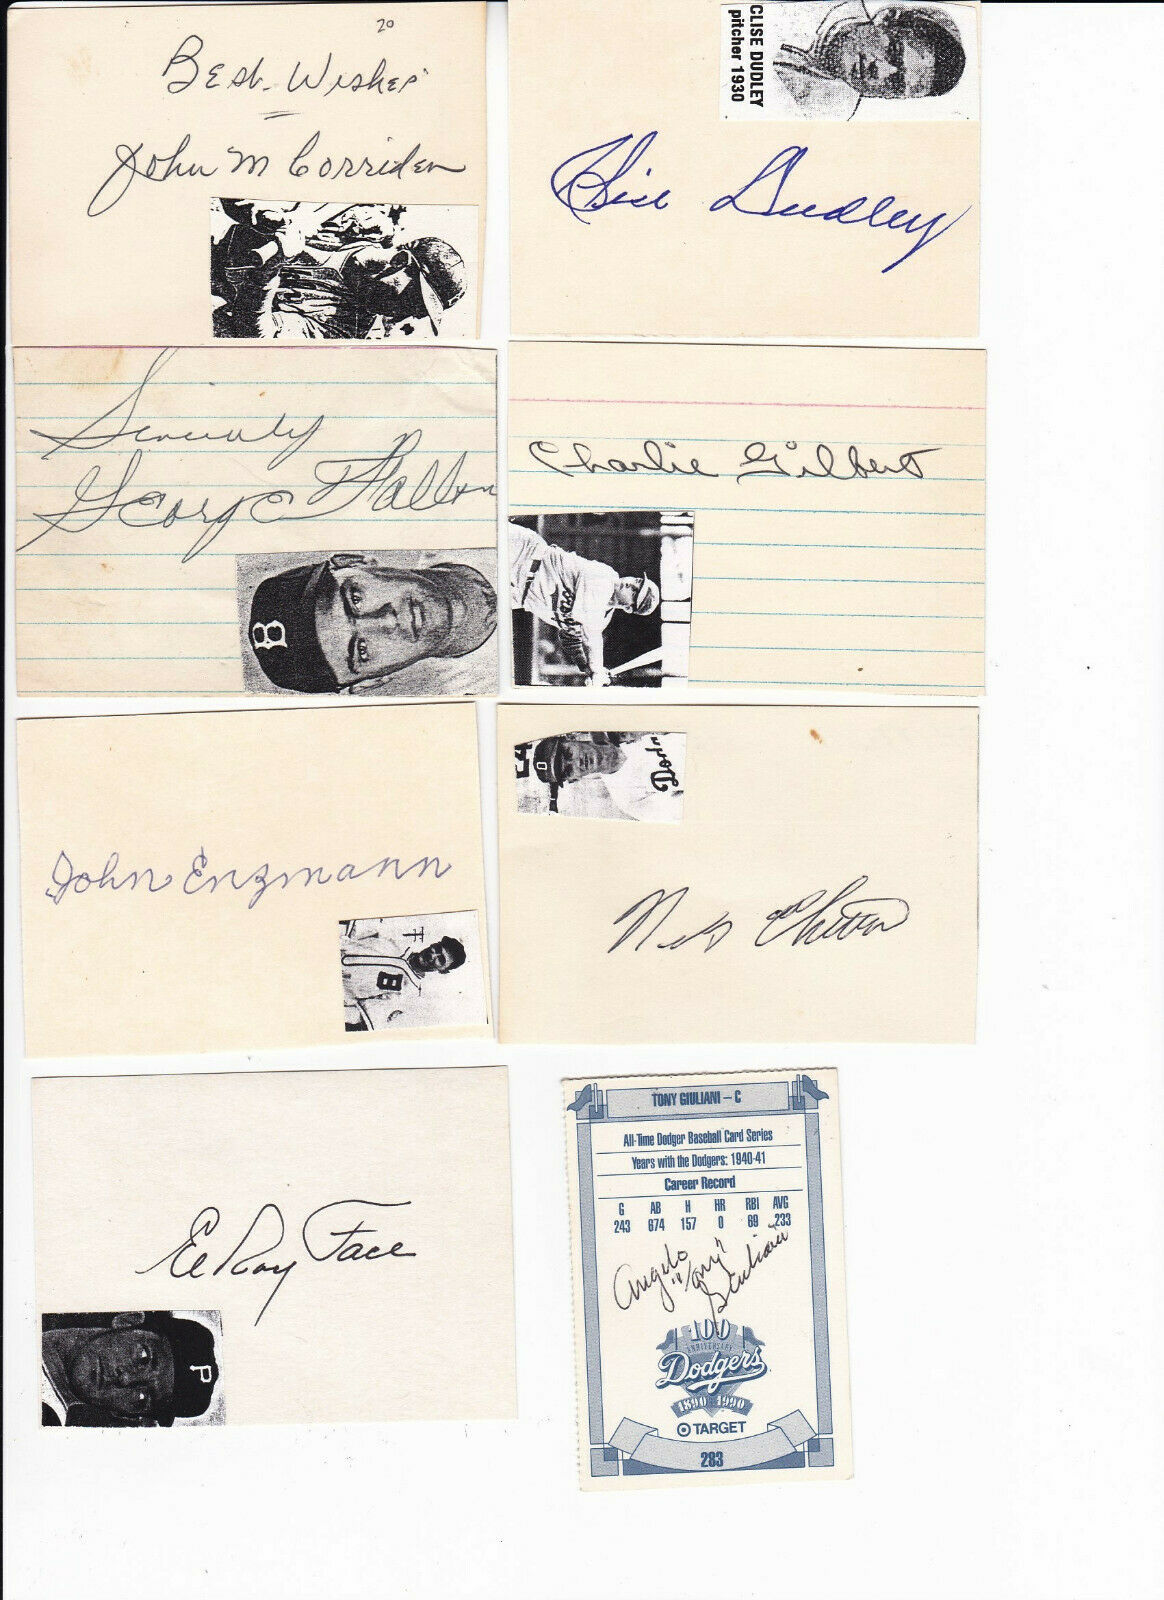 20
Best Wishes
John M Corriden
CLISE DUDLEY
pitcher 1930
Clise Dudley
Sincerely
George Fallon
B
Charlie Gilbert
John Enzmann
B
D
Dodg
Elroy Face
P
TONY GIULIANI – C
All-Time Dodger Baseball Card Series
Years with the Dodgers: 1940-41
Career Record
G AB H HR RBI AVG
243 674 157 0 69 .233
Angelo "Tony" Giuliani
100
ANNIVERSARY
Dodgers
1890 1990
TARGET
283